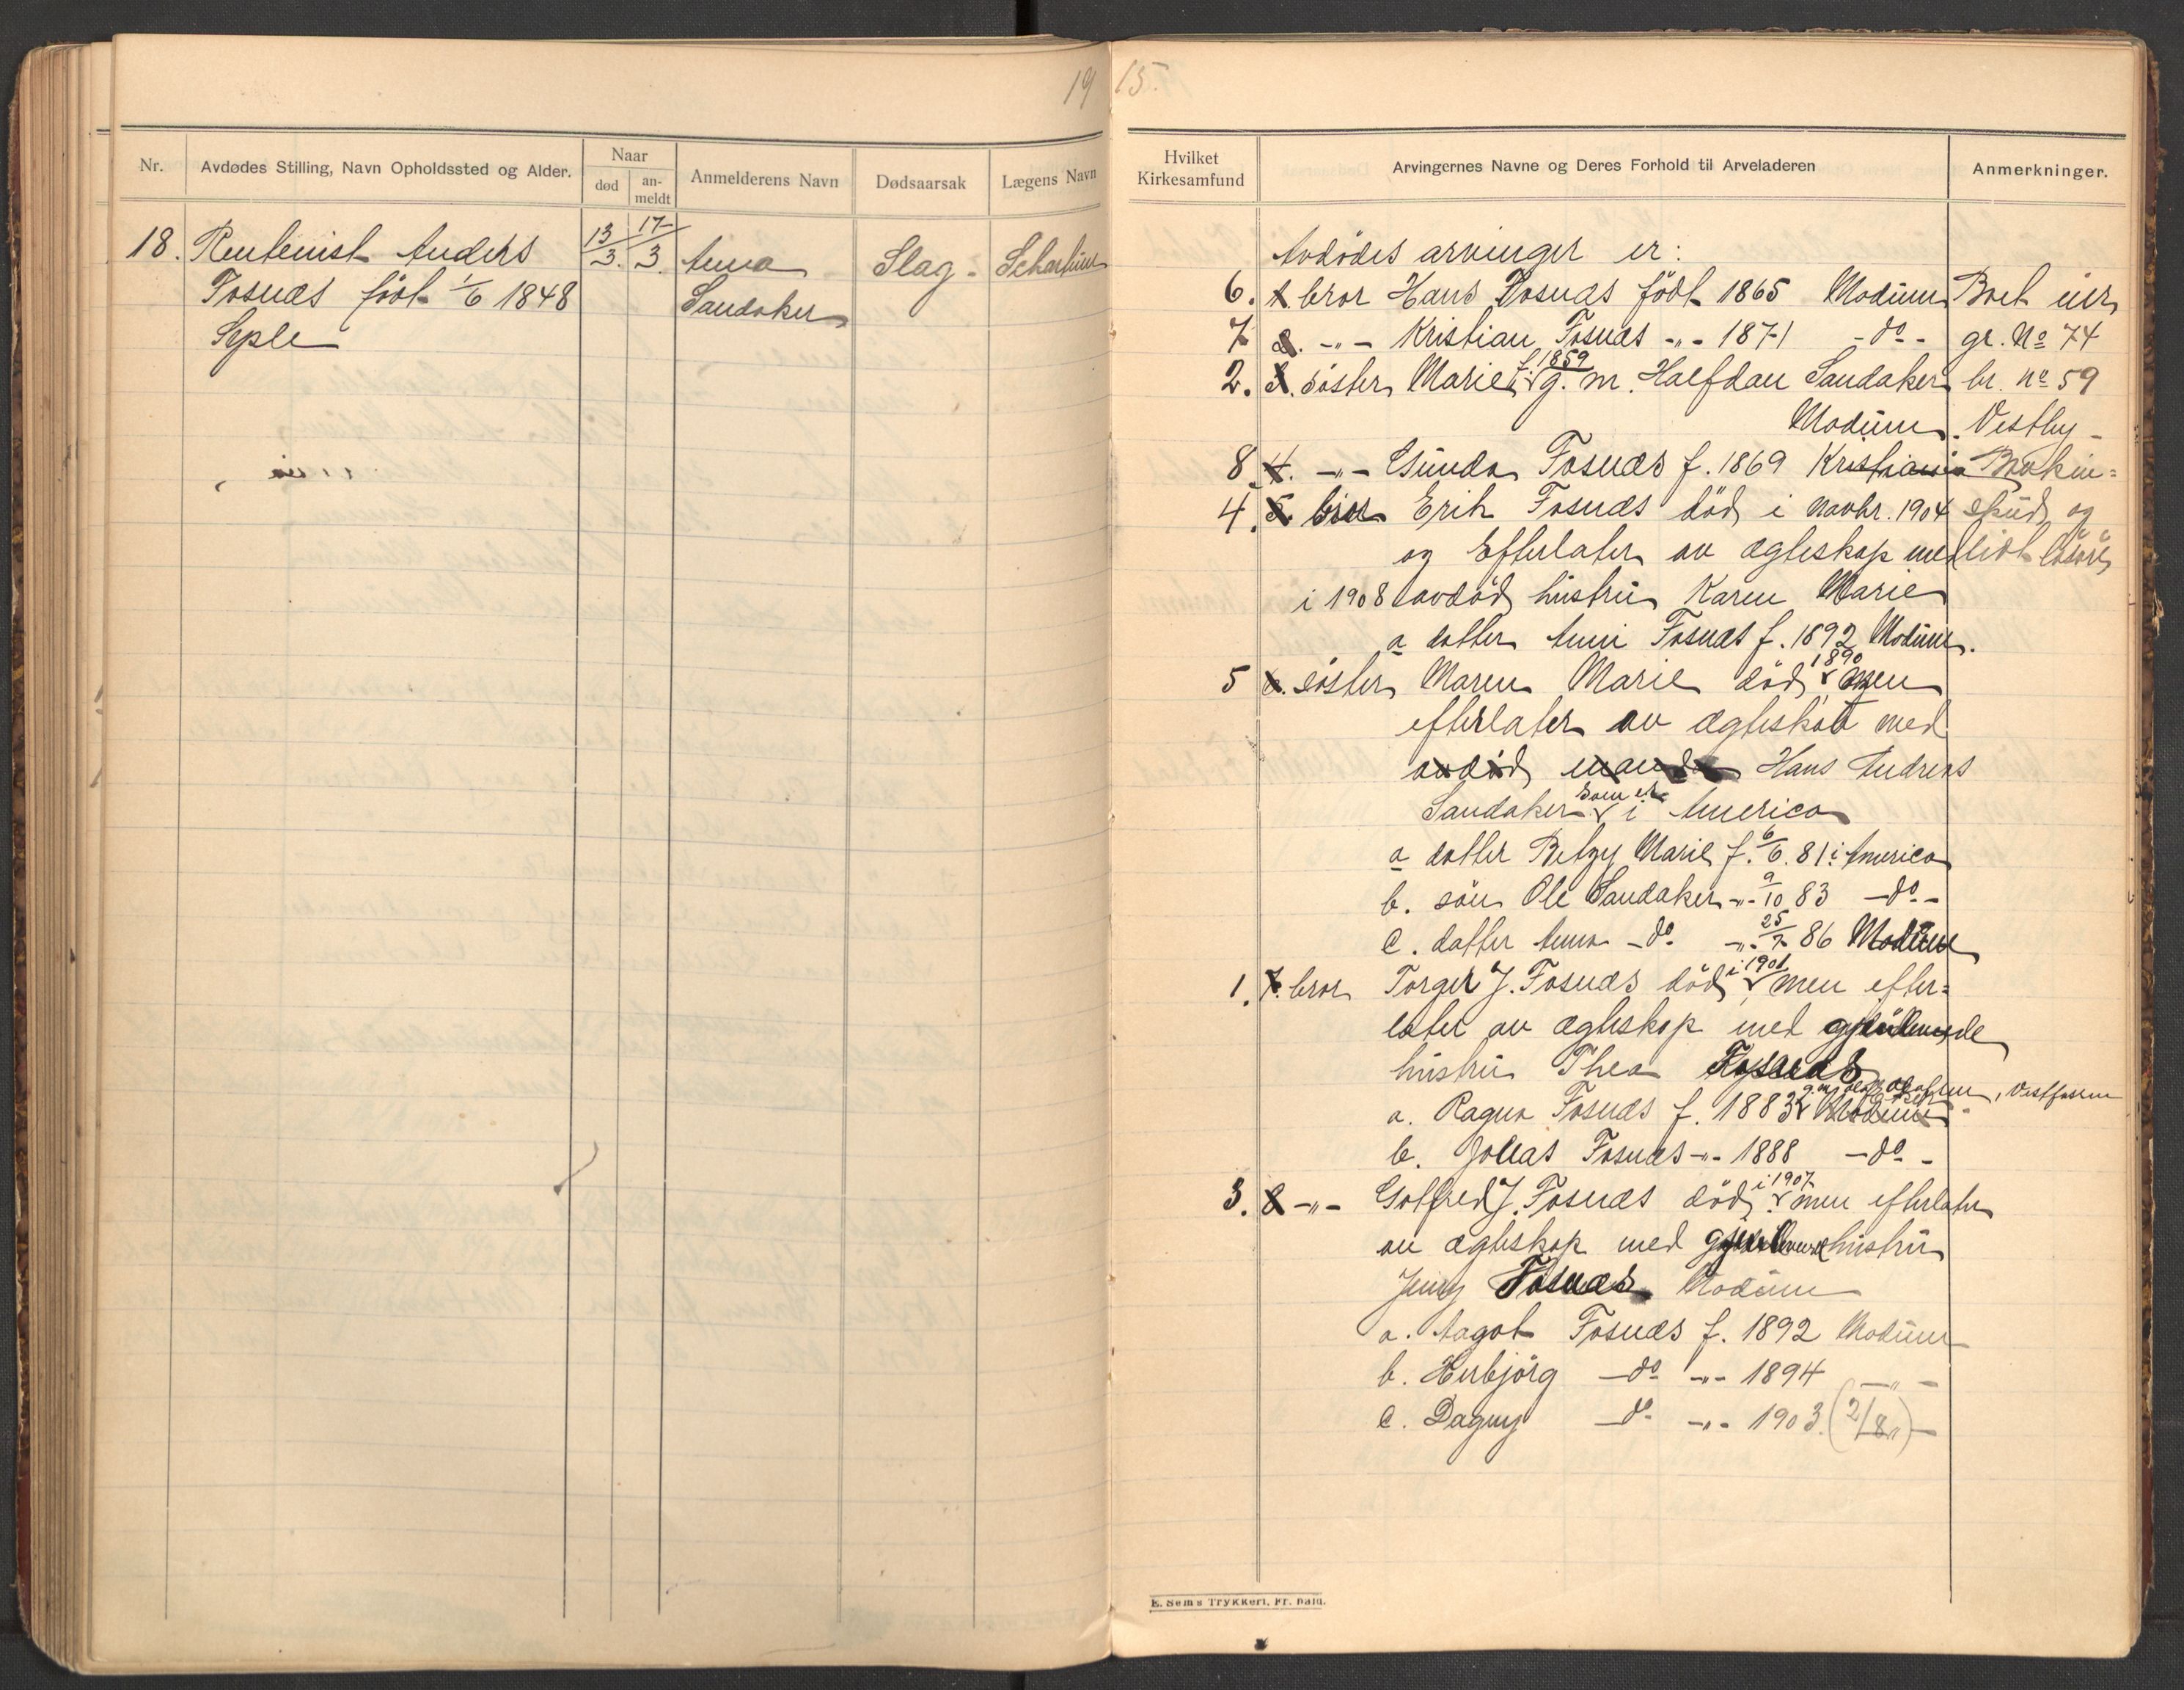 19 15.
Nr.
Avdødes Stilling, Navn Opholdssted og Alder.
Naar
død
an-
meldt
Anmelderens Navn
Dødsaarsak
Lægens Navn
18. Rentenist Anders
Fosnæs født 1/6 1848
Seple
13/3. 17/3.
Anna
Sandaker
Slag.
Scharhum
Hvilket
Kirkesamfund
Arvingernes Navne og Deres Forhold til Arveladeren
Anmerkninger.
Avdødes arvinger er:
6. 1. bror Hans Fosnæs født 1865 Modum
7 2. -"- Kristian Fosnæs -"- 1871 -do-
2. 3. søster Marie f. 1859 g. m. Halfdan Sandaker
Modum.
8. 4. -"- Gunda Fosnæs f. 1869 Kristiania
4. 5. bror Erik Fosnæs død i novbr. 1904
og Efterlater av ægteskap med
i 1908 avdød hustru Karen Marie
a datter Anni Fosnæs f. 1892 Modum.
5 6. søster Maren Marie død 1890 men
efterlater av ægteskab med
avdød mand Hans Andreas
Sandaker som er i America
a datter Betzy Marie f. 6/6. 81 i America
b. søn Ole Sandaker -"- 9/10 83 -do-
c. datter Anna -do- -"- 25/7 86 Modum
1. 7. bror Torger J. Fosnæs død i 1901 men efter=
later av ægteskap med gjenlevende
hustru Thea Fosnæs
a. Ragna Fosnæs f. 1883 Modum, Vestfossen
b. Jollas Fosnæs -"- 1888 -do-
3. 8 -"- Gotfred J. Fosnæs død i 1907 men efterlater
av ægteskap med gjenlevende hustru
Jenny Fosnæs Modum
a. Aagot Fosnæs f. 1892 Modum
b. Herbjörg -do- -"- 1894 -"-
c. Dagny -do- -"- 1903. (2/8) -
Boet eier
gr. No 74
br. no 59
Vestby -
Bankin=
skud og
lidt løsøre
E. Sems Trykkeri, Fr.hald.